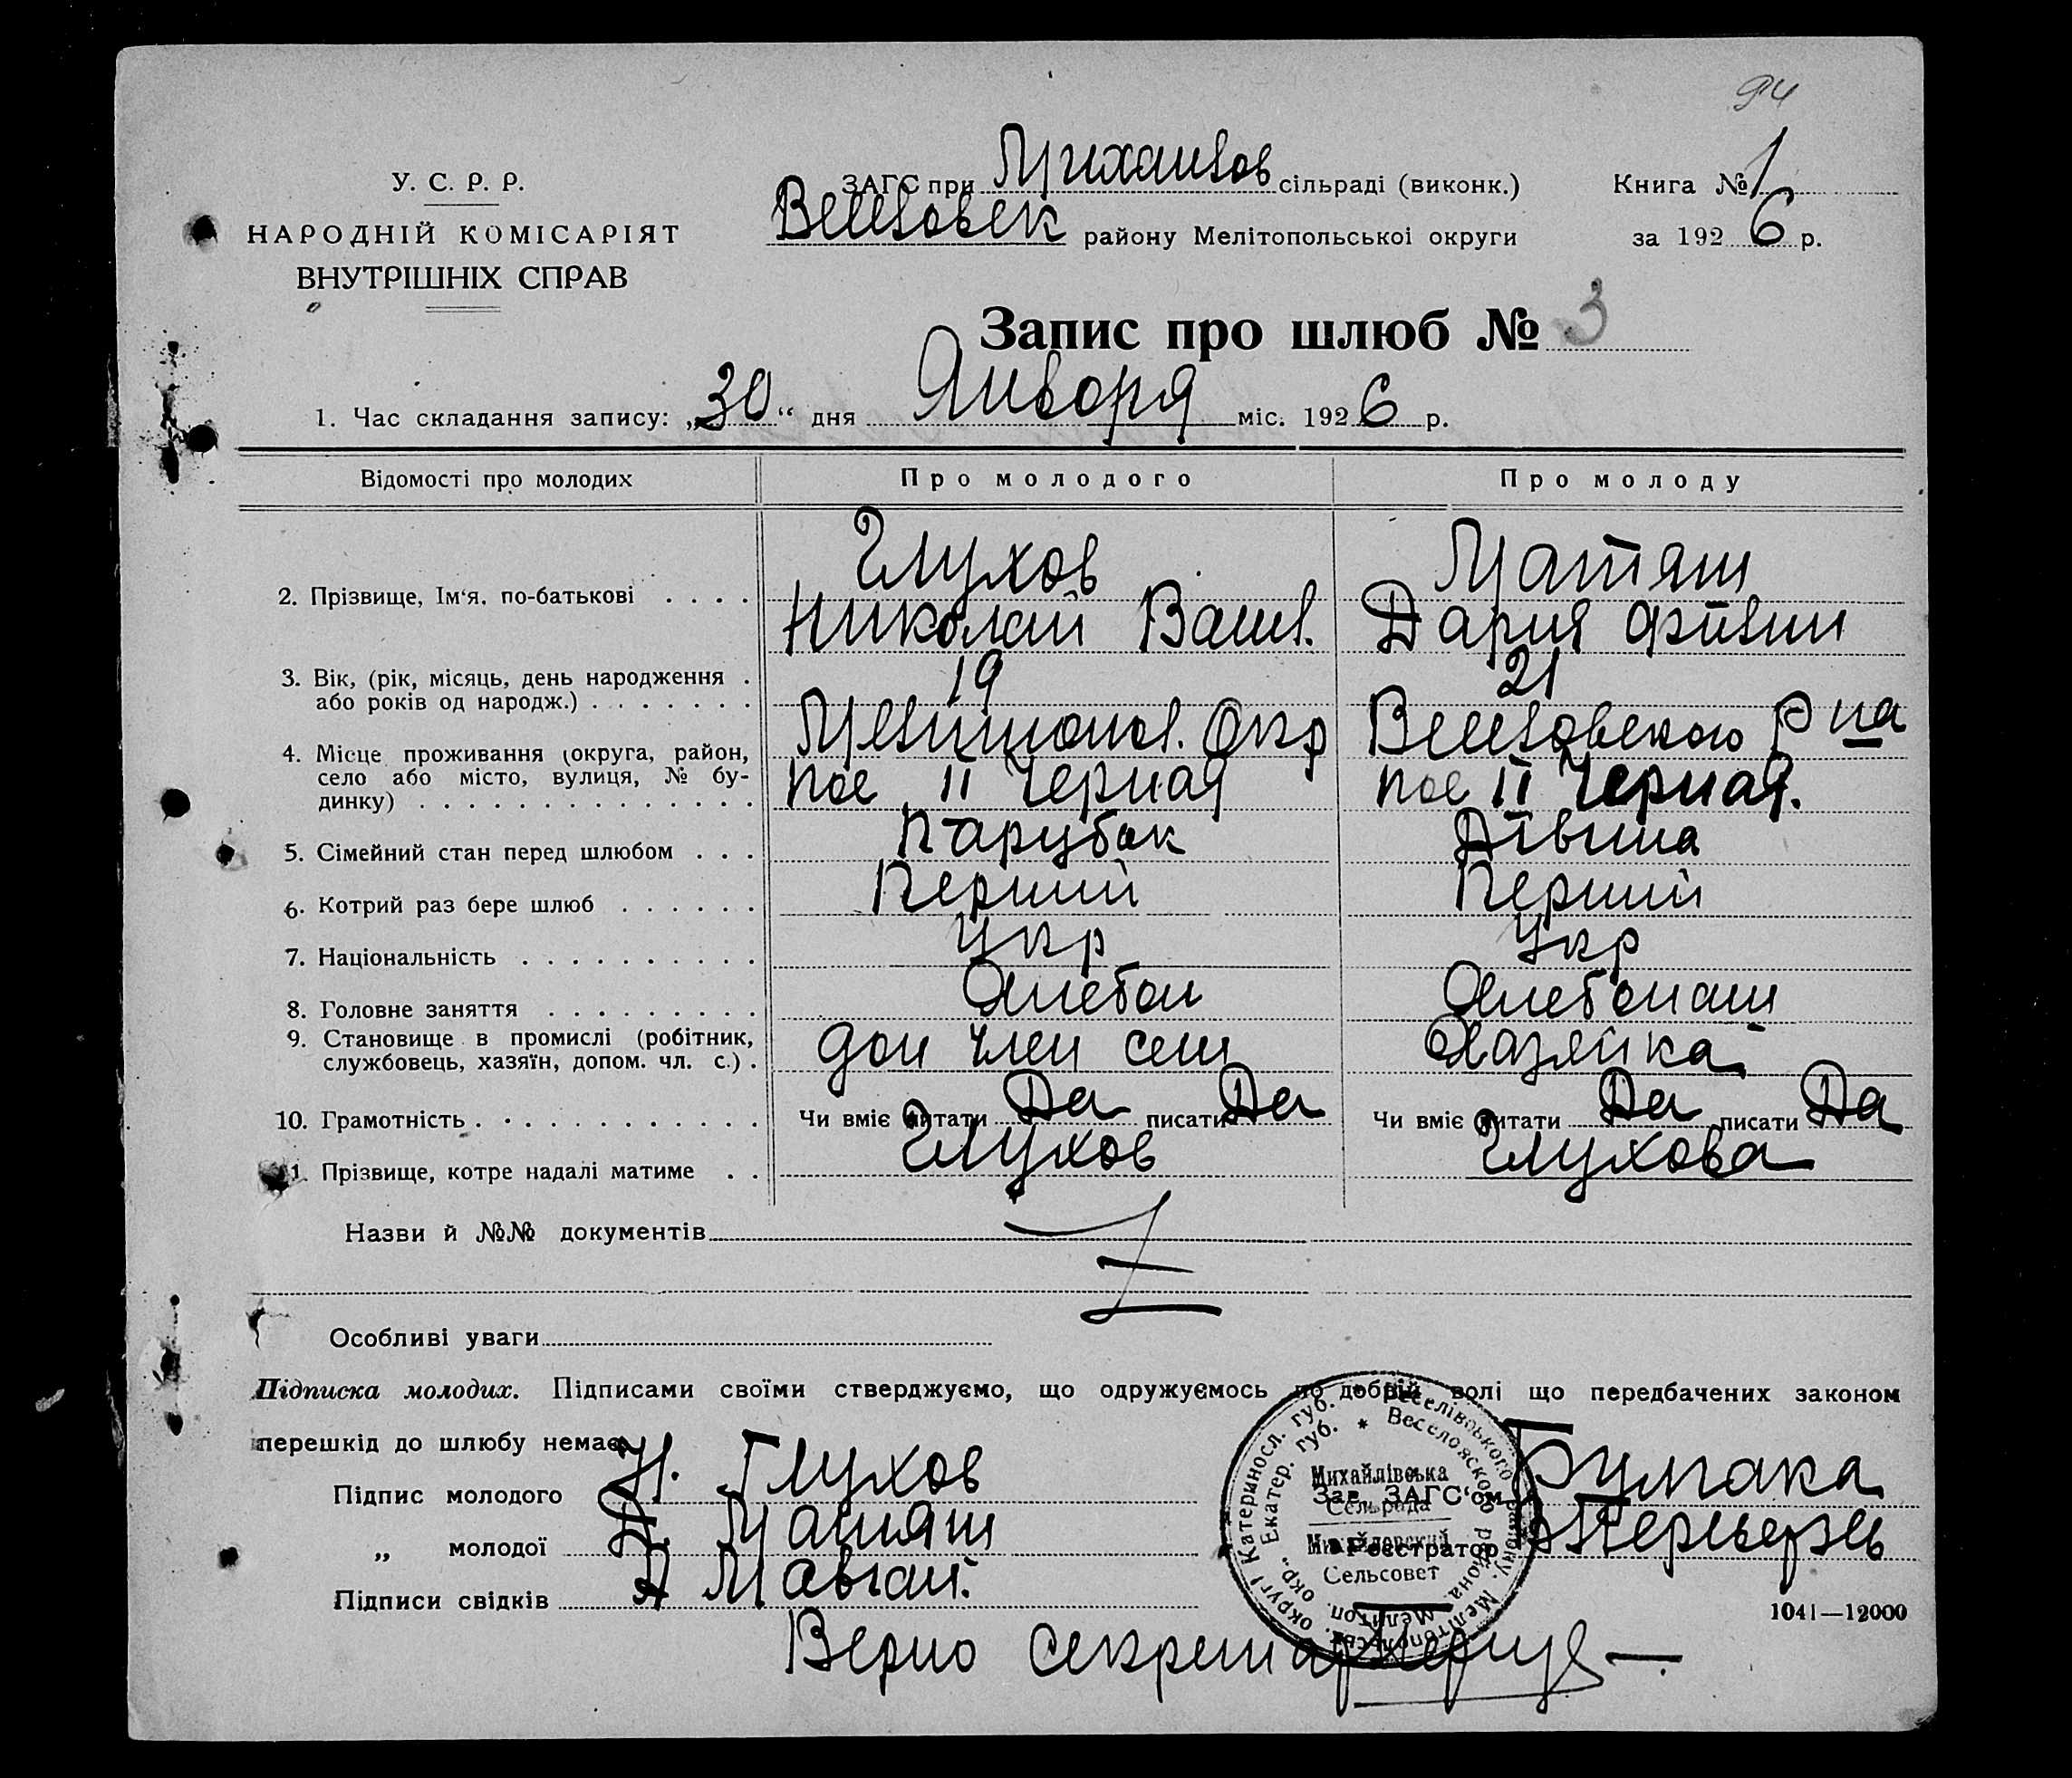 94
У. С. Р. Р.
НАРОДНІЙ КОМІСАРІЯТ
ВНУТРІШНІХ СПРАВ
ЗАГС при Михайлов сільраді (виконк.)
Веселовск району Мелітопольськоі округи
Книга № 1
за 1926 р.
Запис про шлюб № 3
1. Час складання запису: „30“ дня Января міс. 1926 р.
Відомості про молодих Про молодого Про молоду
2. Прізвище, Ім‘я, по-батькові . . . .
Глухов Матяш
Николай Васил. Дария
3. Вік, (рік, місяць, день народження .
або років од народж.) . . . . . . .
19 21
4. Місце проживання (округа, район,
село або місто, вулиця, № бу-
динку) . . . . . . . . . . . . . .
Мелитопол. Окр Веселовского р на
пос II Черная пос II Черная.
5. Сімейний стан перед шлюбом . . . Парубок Дівчина
6. Котрий раз бере шлюб . . . . . . Перший Перший
7. Національність . . . . . . . . . . Укр Укр
8. Головне заняття . . . . . . . . . Хлебоп Хлебопаш
9. Становище в промислі (робітник,
службовець, хазяїн, допом. чл. с.) .
доп член сем Хазяйка
10. Грамотність . . . . . . . . . . . . Чи вміє читати Да писати Да Чи вміє читати Да писати Да
11. Прізвище, котре надалі матиме . . Глухов Глухова
Назви й №№ документів
Особливі уваги
Підписка молодих. Підписами своїми стверджуємо, що одружуємось по добрій волі що передбачених законом
перешкід до шлюбу немає.
Підпис молодого Н. Глухов
„ молодої Д. Матяш
Підписи свідків
Зав. ЗАГС‘ом Бумака
Реєстратор
Михайлівська
Сельрада
Михайловский
Сельсовет
1041—12000
Верно Секретар